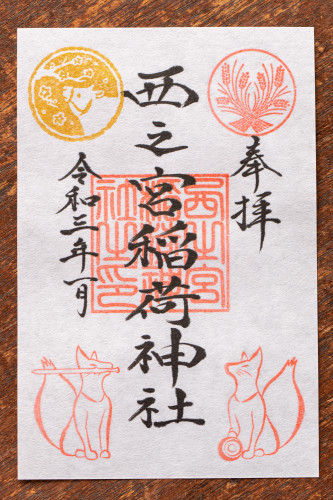 奉拝
西之宮稲荷神社
令和三年一月
西之宮稲荷神社之印